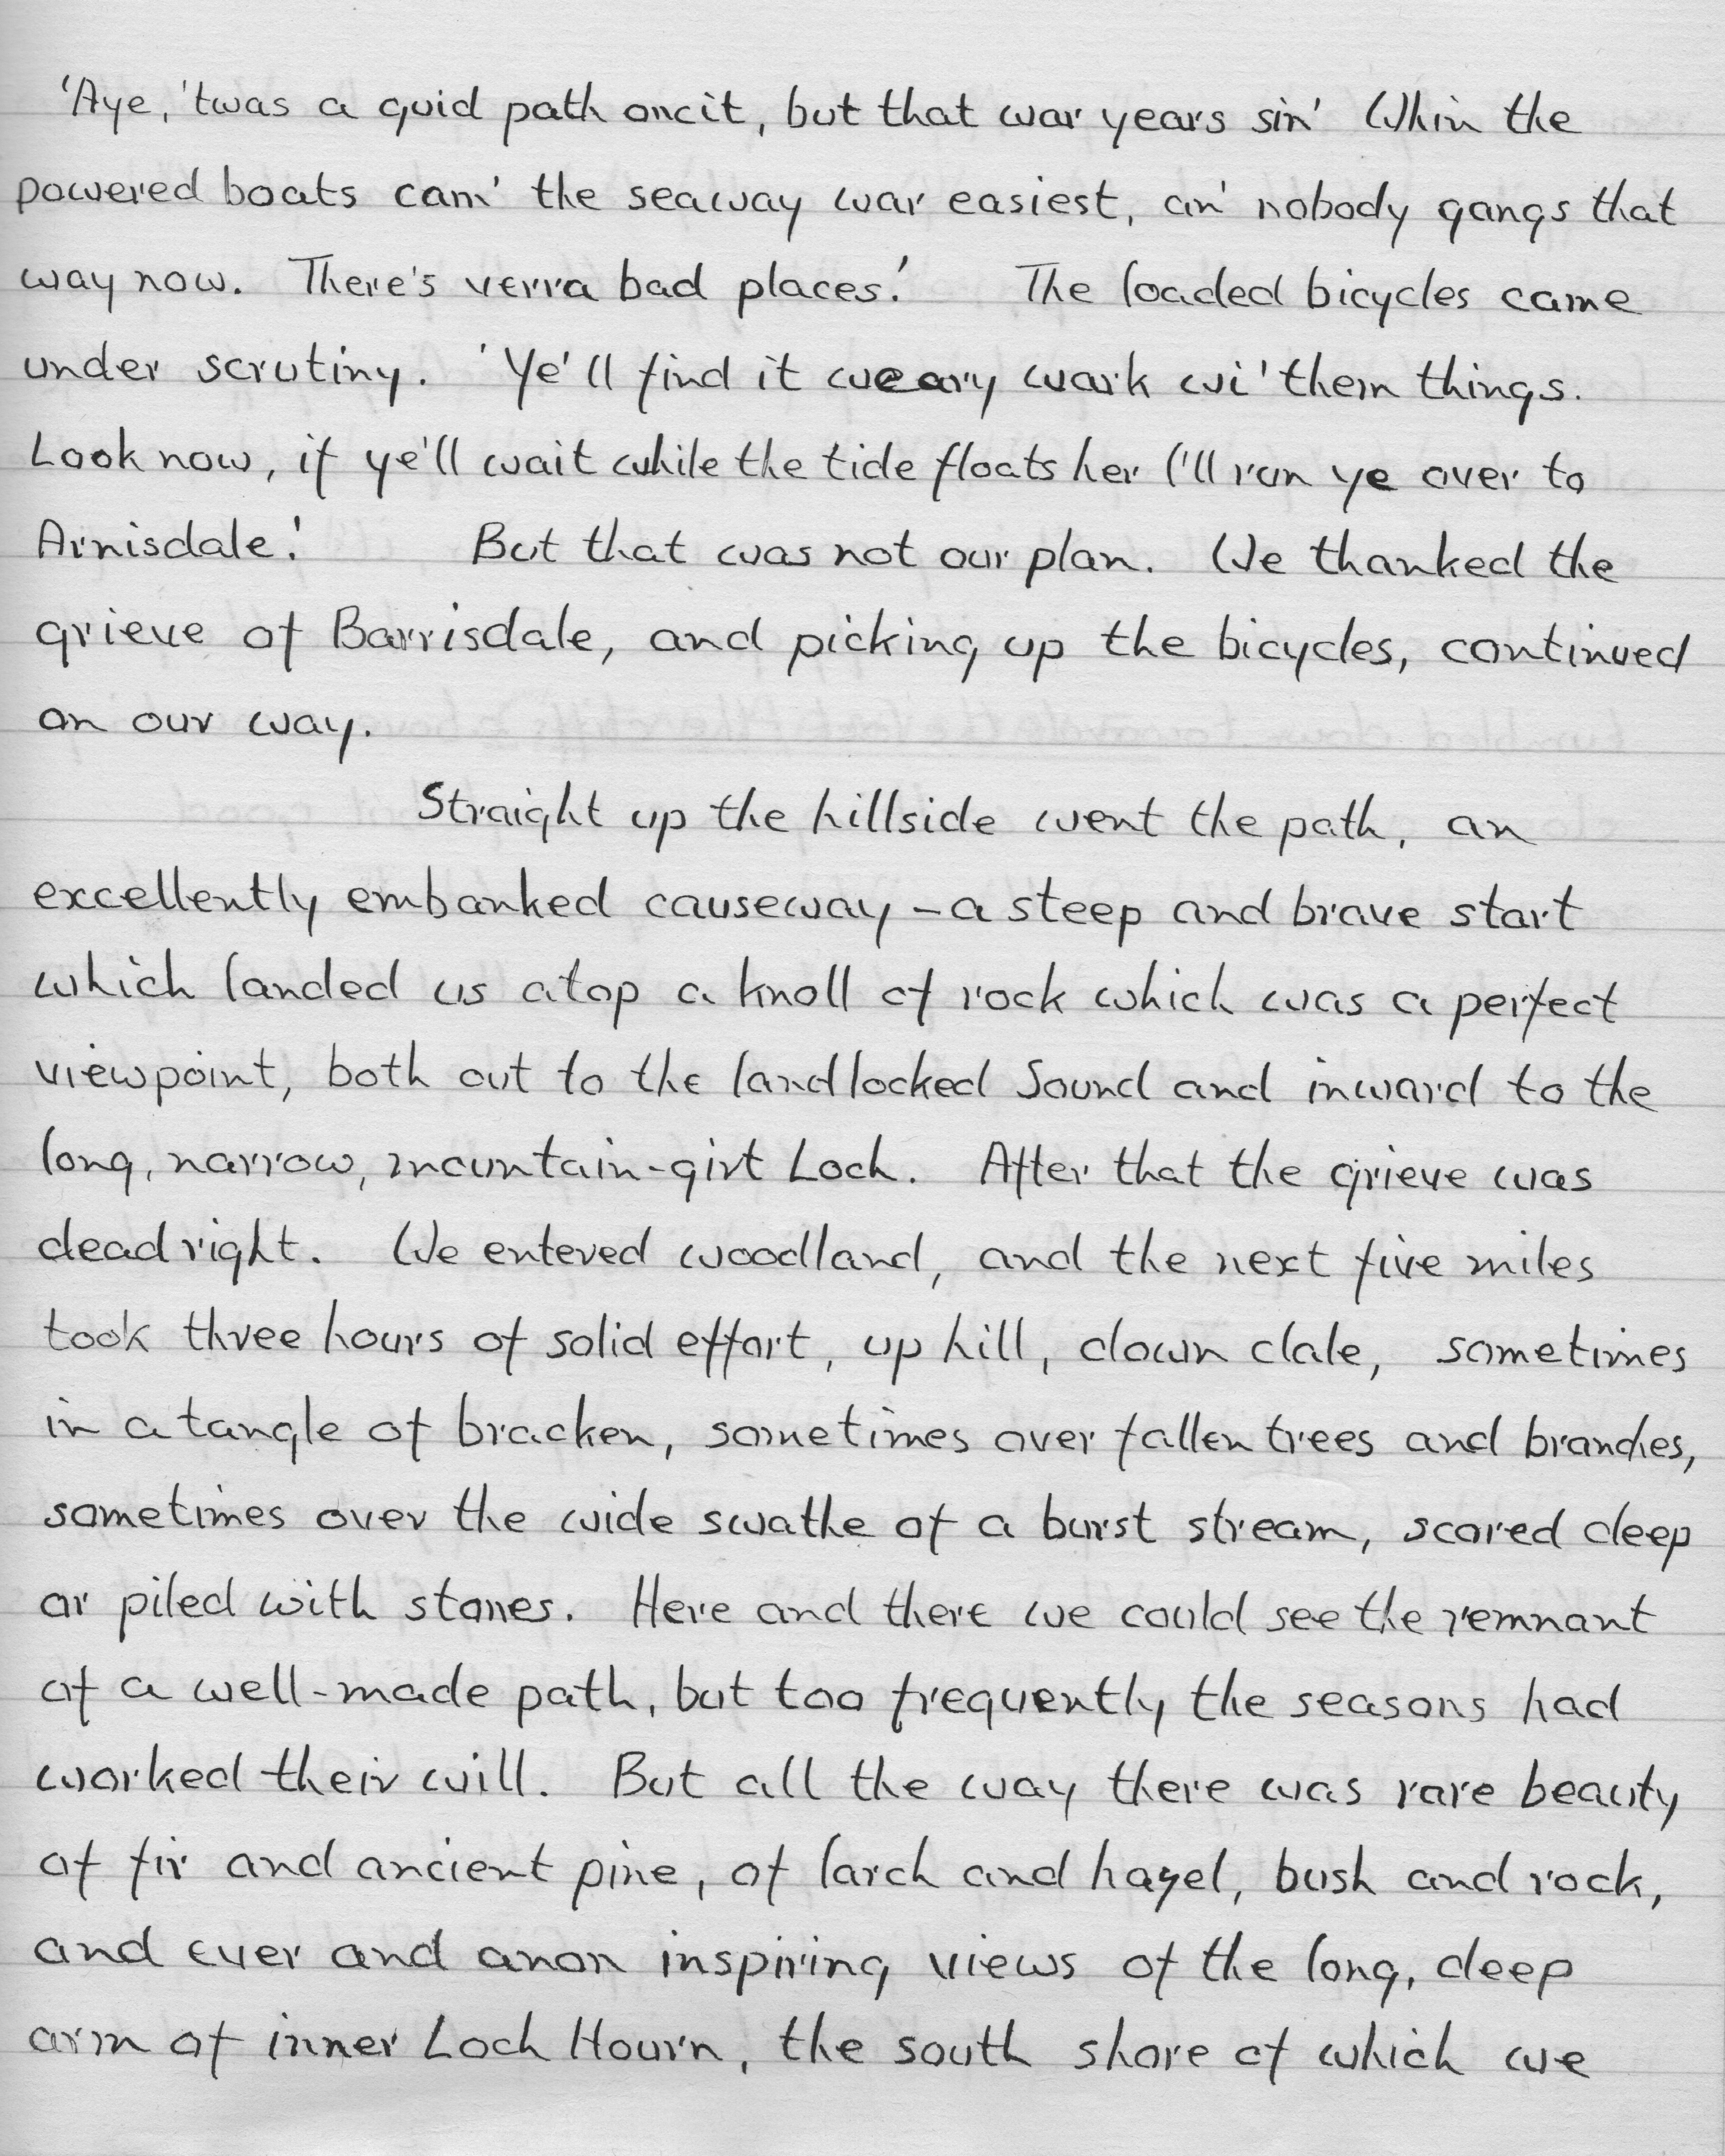 'Aye, 'twas a guid path oncit, but that war years sin' Whin the
powered boats cam' the seaway war easiest, an' nobody gangs that
way now. There's verra bad places.' The loaded bicycles came
under scrutiny. 'Ye'll find it weary wark wi' them things.
Look now, if ye'll wait while the tide floats her I'll run ye over to
Arnisdale.' But that was not our plan. We thanked the
grieve of Barrisdale, and picking up the bicycles, continued
on our way.
Straight up the hillside went the path, an
excellently embanked causeway - a steep and brave start
which landed us atop a knoll of rock which was a perfect
viewpoint, both out to the landlocked Sound and inward to the
long, narrow, mountain-girt Loch. After that the grieve was
dead right. We entered woodland, and the next five miles
took three hours of solid effort, up hill, down dale, sometimes
in a tangle of bracken, sometimes over fallen trees and branches,
sometimes over the wide swathe of a burst stream, scored deep
or piled with stones. Here and there we could see the remnant
of a well-made path, but too frequently the seasons had
worked their will. But all the way there was rare beauty
of fir and ancient pine, of larch and hazel, bush and rock,
and ever and anon inspiring views of the long, deep
arm of inner Loch Hourn, the south shore of which we